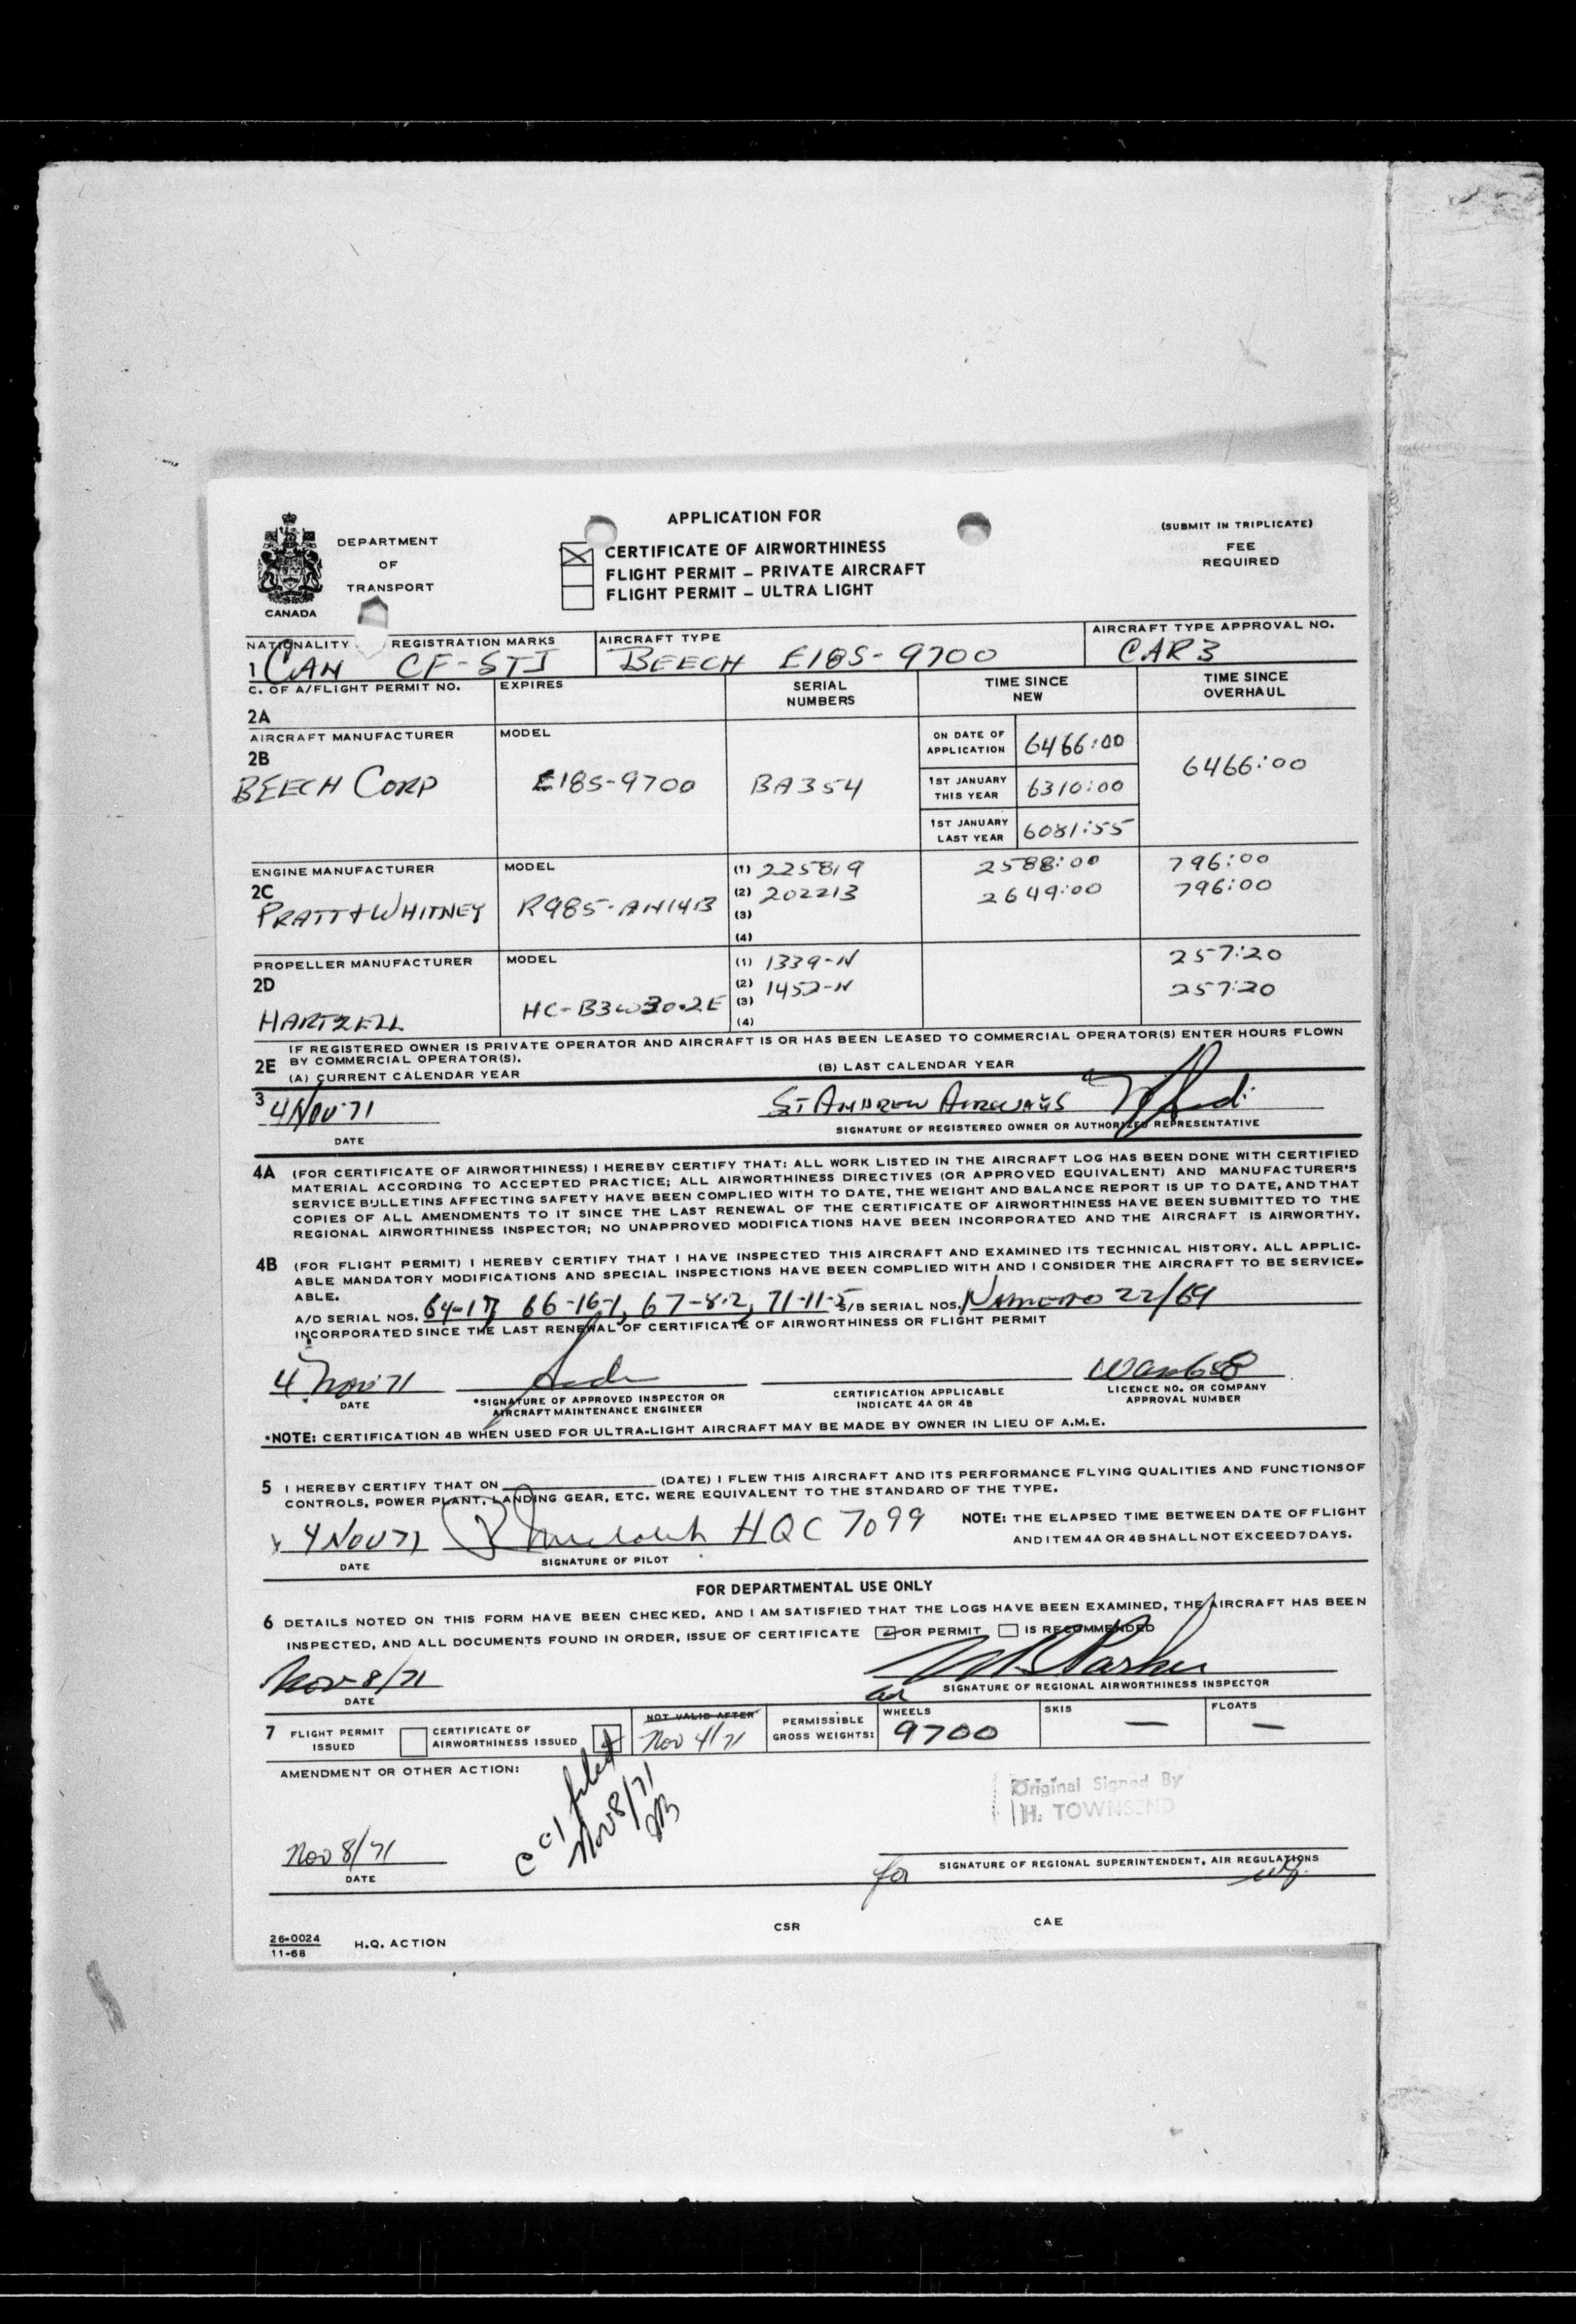 DEPARTMENT
OF
TRANSPORT
CANADA
APPLICATION FOR
CERTIFICATE OF AIRWORTHINESS
FLIGHT PERMIT – PRIVATE AIRCRAFT
FLIGHT PERMIT – ULTRA LIGHT
(SUBMIT IN TRIPLICATE)
FEE
REQUIRED
NATIONALITY REGISTRATION MARKS AIRCRAFT TYPE AIRCRAFT TYPE APPROVAL NO.
1 CAN CF-STJ BEECH E18S-9700 CAR 3
C. OF A/FLIGHT PERMIT NO. EXPIRES SERIAL NUMBERS TIME SINCE NEW TIME SINCE OVERHAUL
2A
AIRCRAFT MANUFACTURER MODEL
2B
BEECH CORP E18S-9700 BA354
ON DATE OF APPLICATION 6466:00 6466:00
1ST JANUARY THIS YEAR 6310:00
1ST JANUARY LAST YEAR 6081:55
ENGINE MANUFACTURER MODEL (1) 225819 2588:00 796:00
2C (2) 202213 2649:00 796:00
PRATT & WHITNEY R985-AN14B (3)
(4)
PROPELLER MANUFACTURER MODEL (1) 1339-N 257:20
2D (2) 1452-N 257:20
HARTZELL HC-B3W30-2E (3)
(4)
2E IF REGISTERED OWNER IS PRIVATE OPERATOR AND AIRCRAFT IS OR HAS BEEN LEASED TO COMMERCIAL OPERATOR(S) ENTER HOURS FLOWN
BY COMMERCIAL OPERATOR(S).
(A) CURRENT CALENDAR YEAR (B) LAST CALENDAR YEAR
3 4 NOV 71 ST ANDREW AIRWAYS
DATE SIGNATURE OF REGISTERED OWNER OR AUTHORIZED REPRESENTATIVE
4A (FOR CERTIFICATE OF AIRWORTHINESS) I HEREBY CERTIFY THAT: ALL WORK LISTED IN THE AIRCRAFT LOG HAS BEEN DONE WITH CERTIFIED
MATERIAL ACCORDING TO ACCEPTED PRACTICE; ALL AIRWORTHINESS DIRECTIVES (OR APPROVED EQUIVALENT) AND MANUFACTURER'S
SERVICE BULLETINS AFFECTING SAFETY HAVE BEEN COMPLIED WITH TO DATE, THE WEIGHT AND BALANCE REPORT IS UP TO DATE, AND THAT
COPIES OF ALL AMENDMENTS TO IT SINCE THE LAST RENEWAL OF THE CERTIFICATE OF AIRWORTHINESS HAVE BEEN SUBMITTED TO THE
REGIONAL AIRWORTHINESS INSPECTOR; NO UNAPPROVED MODIFICATIONS HAVE BEEN INCORPORATED AND THE AIRCRAFT IS AIRWORTHY.
4B (FOR FLIGHT PERMIT) I HEREBY CERTIFY THAT I HAVE INSPECTED THIS AIRCRAFT AND EXAMINED ITS TECHNICAL HISTORY. ALL APPLIC-
ABLE MANDATORY MODIFICATIONS AND SPECIAL INSPECTIONS HAVE BEEN COMPLIED WITH AND I CONSIDER THE AIRCRAFT TO BE SERVICE-
ABLE.
A/D SERIAL NOS. 66-16-1, 67-8-2, 71-11-5 S/B SERIAL NOS. 22/69
INCORPORATED SINCE THE LAST RENEWAL OF CERTIFICATE OF AIRWORTHINESS OR FLIGHT PERMIT
4 Nov 71
DATE *SIGNATURE OF APPROVED INSPECTOR OR AIRCRAFT MAINTENANCE ENGINEER CERTIFICATION APPLICABLE INDICATE 4A OR 4B LICENCE NO. OR COMPANY APPROVAL NUMBER
*NOTE: CERTIFICATION 4B WHEN USED FOR ULTRA-LIGHT AIRCRAFT MAY BE MADE BY OWNER IN LIEU OF A.M.E.
5 I HEREBY CERTIFY THAT ON (DATE) I FLEW THIS AIRCRAFT AND ITS PERFORMANCE FLYING QUALITIES AND FUNCTIONS OF
CONTROLS, POWER PLANT, LANDING GEAR, ETC. WERE EQUIVALENT TO THE STANDARD OF THE TYPE.
x 4 NOV 71 HQC 7099 NOTE: THE ELAPSED TIME BETWEEN DATE OF FLIGHT
AND ITEM 4A OR 4B SHALL NOT EXCEED 7 DAYS.
DATE SIGNATURE OF PILOT
FOR DEPARTMENTAL USE ONLY
6 DETAILS NOTED ON THIS FORM HAVE BEEN CHECKED, AND I AM SATISFIED THAT THE LOGS HAVE BEEN EXAMINED, THE AIRCRAFT HAS BEEN
INSPECTED, AND ALL DOCUMENTS FOUND IN ORDER, ISSUE OF CERTIFICATE OR PERMIT IS RECOMMENDED
Nov 8/71 Parker
DATE SIGNATURE OF REGIONAL AIRWORTHINESS INSPECTOR
7 FLIGHT PERMIT ISSUED CERTIFICATE OF AIRWORTHINESS ISSUED NOT VALID AFTER Nov 4/71 PERMISSIBLE GROSS WEIGHTS: WHEELS 9700 SKIS — FLOATS —
AMENDMENT OR OTHER ACTION:
filed
Nov 8/71
Original Signed By
H. TOWNSEND
Nov 8/71
DATE for SIGNATURE OF REGIONAL SUPERINTENDENT, AIR REGULATIONS
26-0024
11-68 H.Q. ACTION CSR CAE